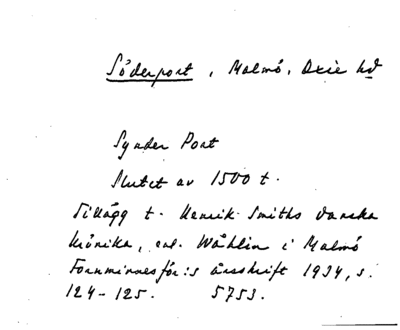 Söderport, Malmö, Oxie hd
Synder Port
Slutet av 1500 t.
Tillägg t. Henrik Smiths danska
krönika, enl. Wåhlin i Malmö
Fornminnesför:s årsskrift 1934, s.
124-125. 5753.